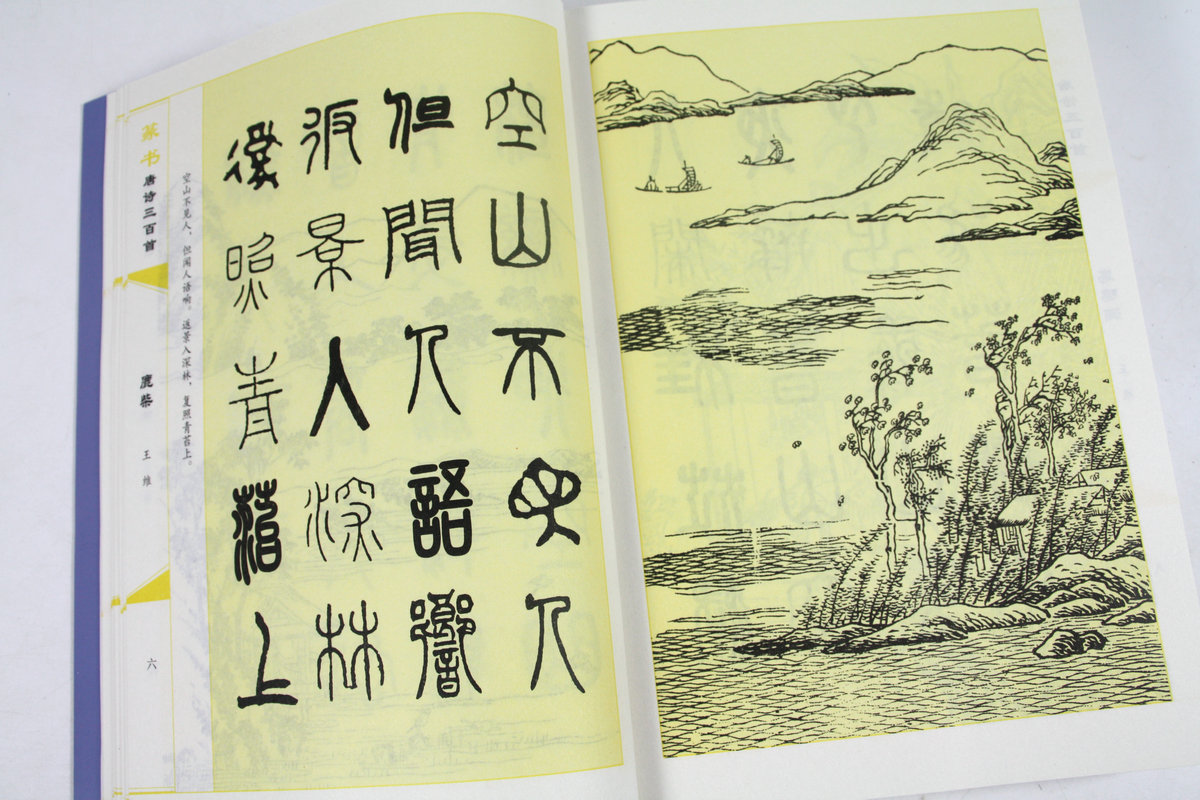 空山不見人
但聞人語響
返景入深林
復照青苔上
空山不见人，但闻人语响。返景入深林，复照青苔上。
篆书唐诗三百首
鹿柴 王维
六